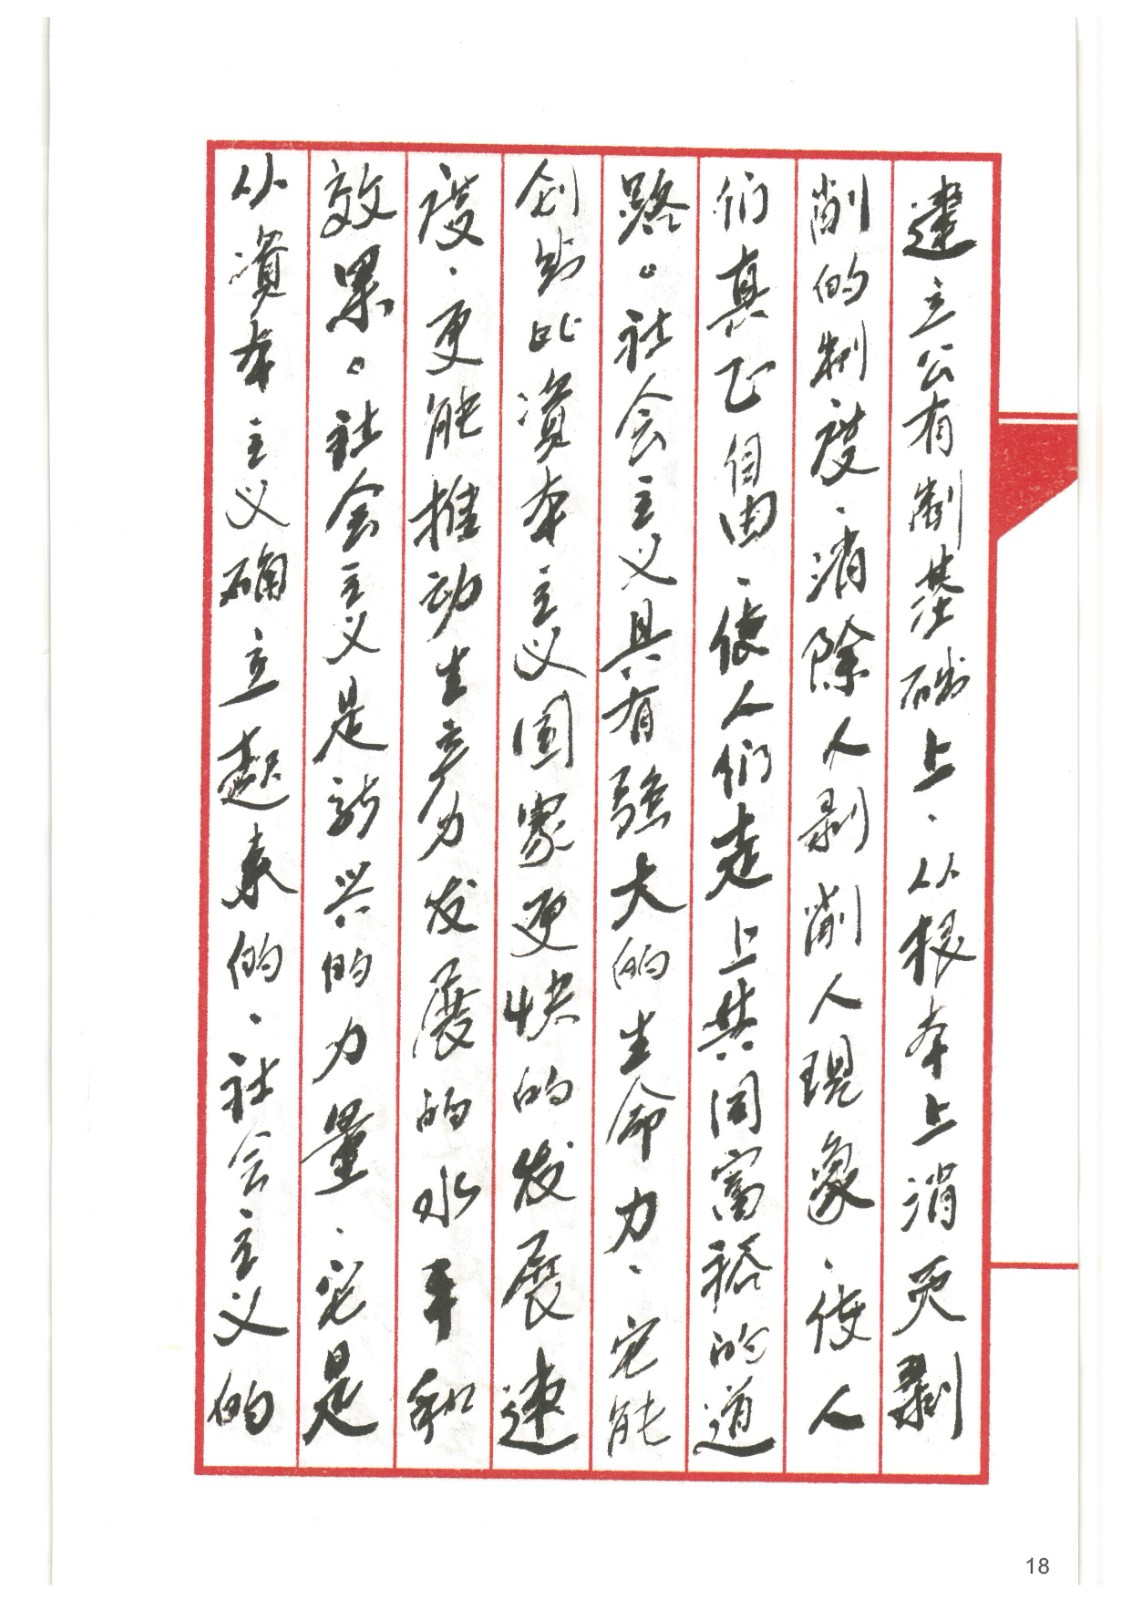 建立公有制基础上、从根本上消灭剥
削的制度、消除人剥削人现象、使人
们真正自由、使人们走上共同富裕的道
路。社会主义具有强大的生命力、它能
创造比资本主义国家更快的发展速
度、更能推动生产力发展的水平和
效果。社会主义是新兴的力量、它是
从资本主义确立起来的、社会主义的
18